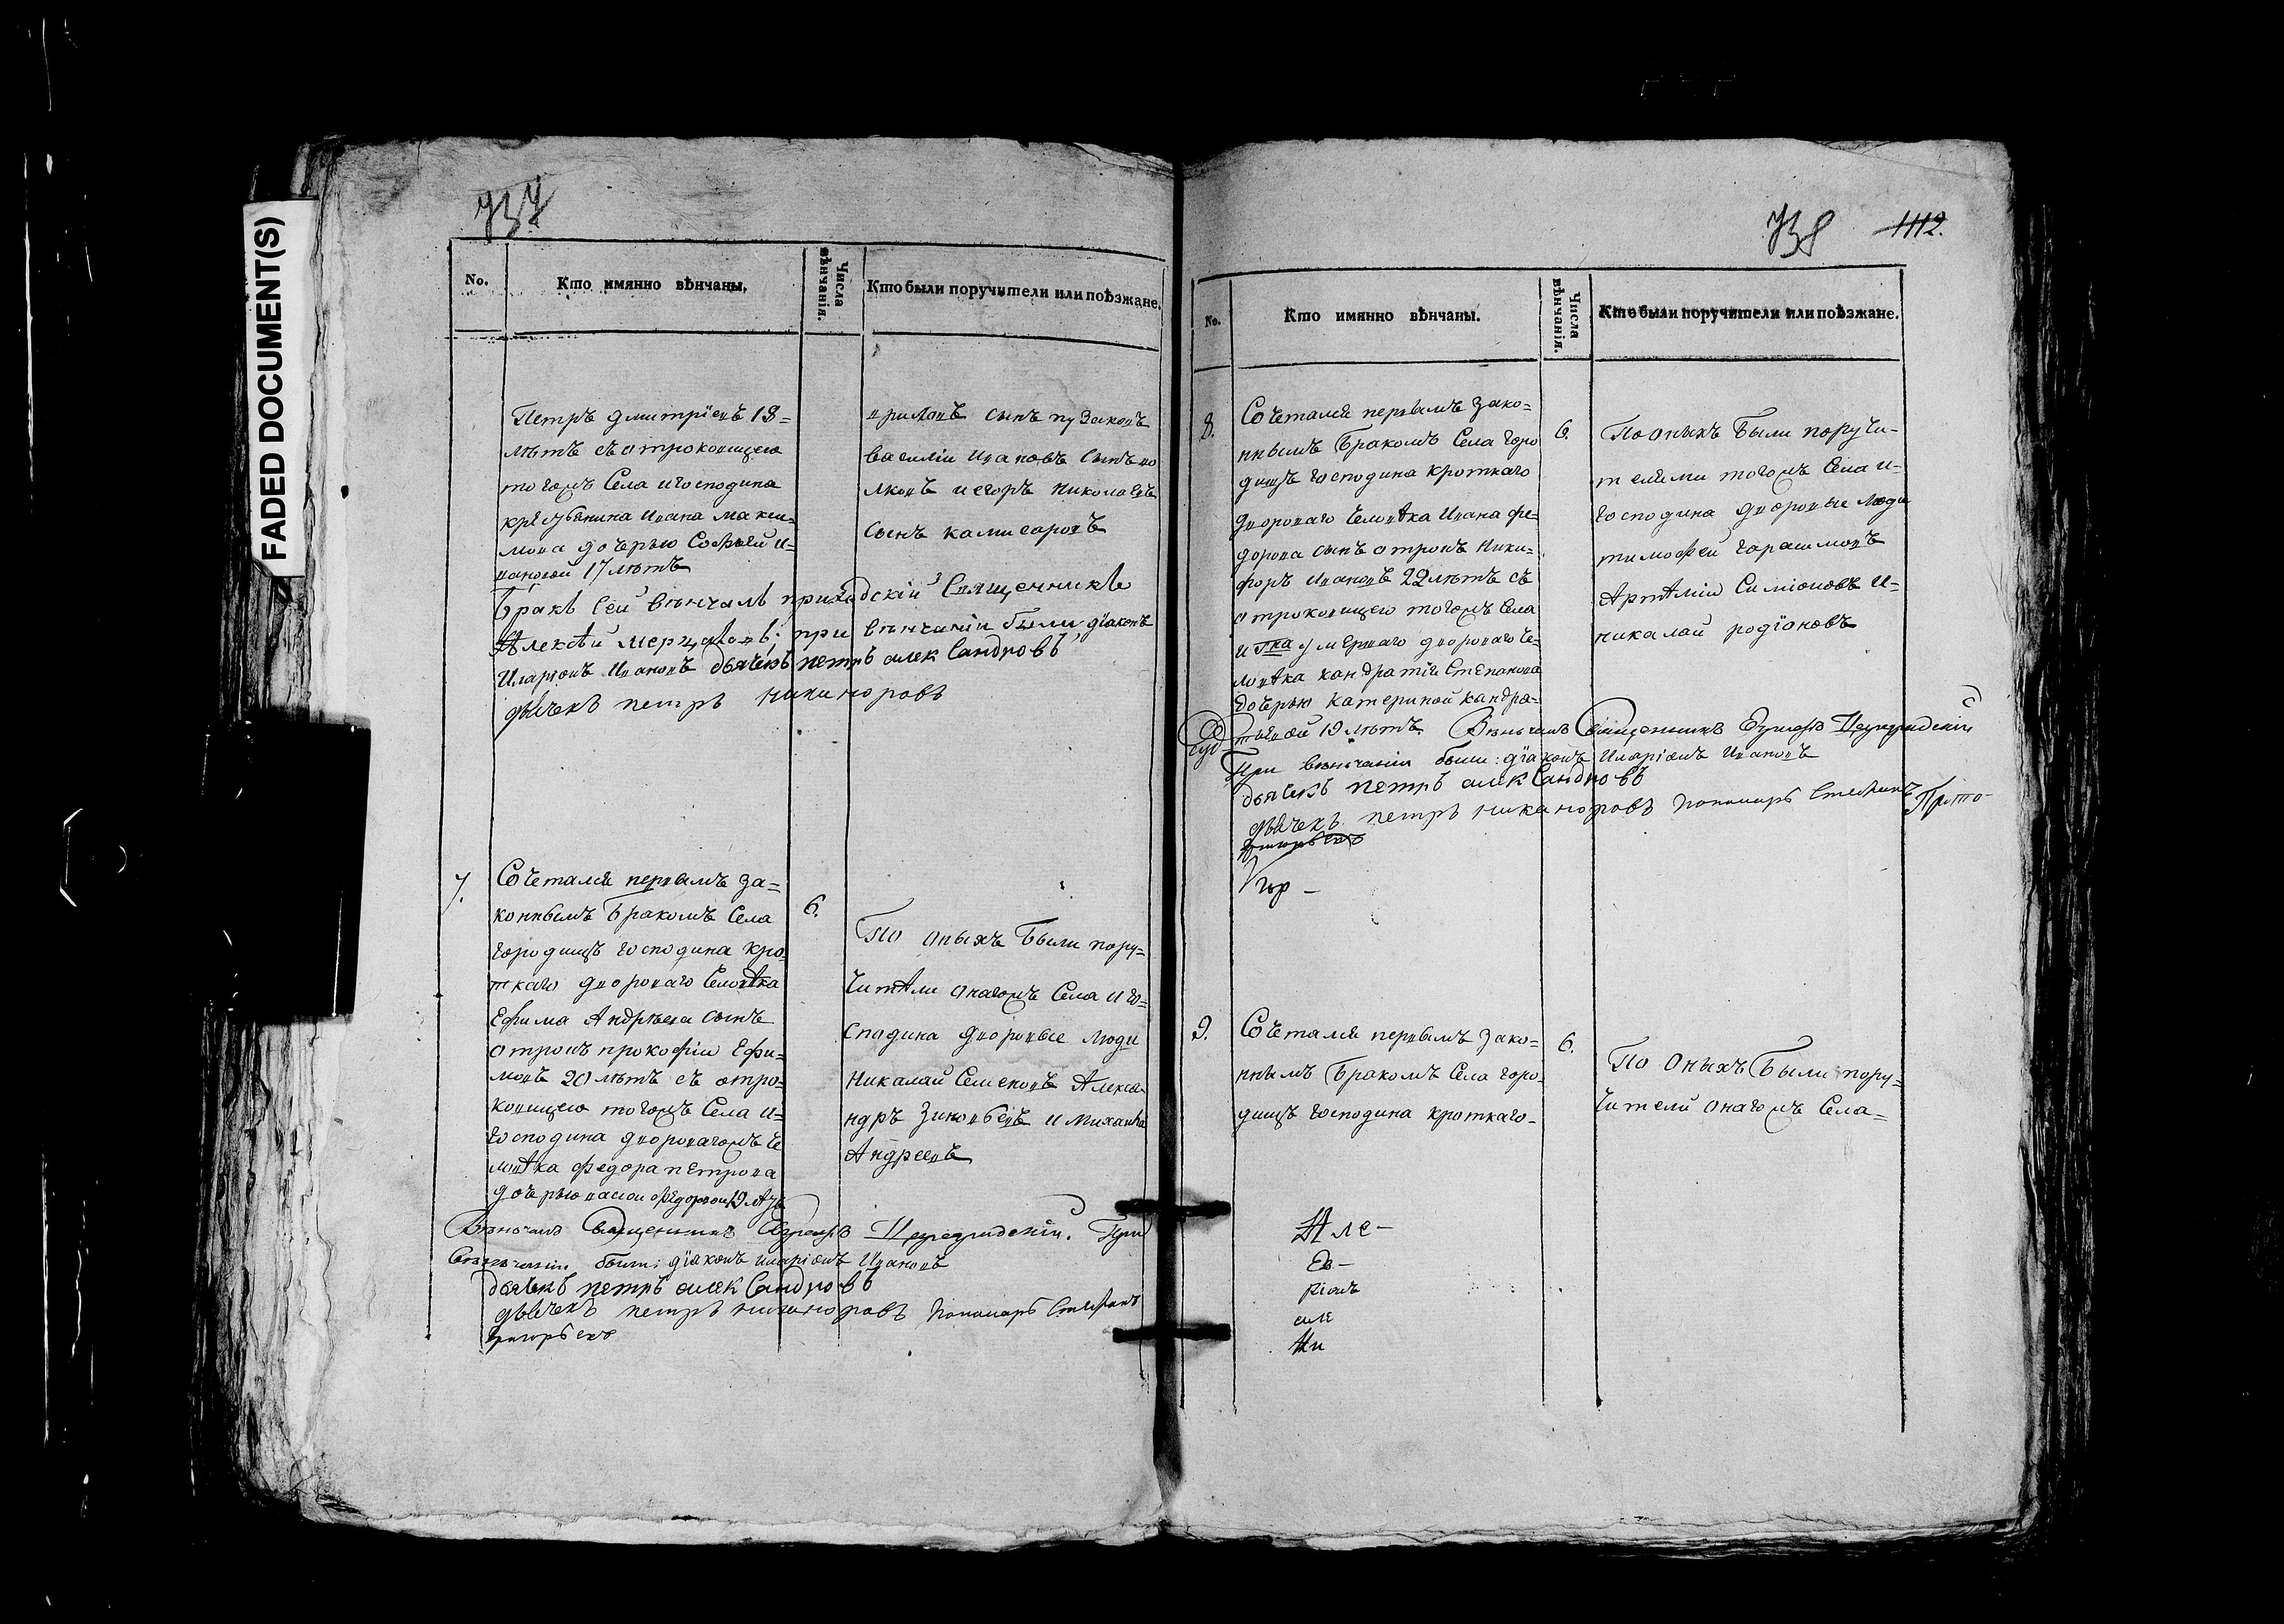 FADED DOCUMENT(S)
737
No.
Кто имянно вѣнчаны.
Числа вѣнчанія.
Кто были поручители или поѣзжане.
Петръ дмитріевъ 18=
лѣтъ съ отроковицею
тогожъ Села игосподина
крестьянина Ивана макси=
мова дочерью Софьей и=
вановой 17 лѣтъ
сынъ пузаковъ
василіи Ивановъ Сынъ по
ляковъ и егоръ николаевъ
сынъ камисаровъ
бракъ сей вѣнчалъ приходскій Священникъ
Алексѣй мерцаловъ; при вѣнчаніи были діаконъ
Иларіонъ Ивановъ дьячекъ петръ александровъ
дьячекъ петръ никаноровъ
7.
Сочетался первымъ за=
коннымъ бракомъ Села
городищъ господина кро
ткаго двороваго человѣка
Ефима Андрѣева сынъ
отрокъ прокофіи Ефи=
мовъ 20 лѣтъ съ отро=
ковицею тогожъ Села и=
господина двороваго жъ че
ловѣка федора петрова
дочерью федоровой 19 лѣтъ
6.
По оныхъ были пору=
чители онагожъ Села и го=
сподина дворовые люди
николай Семеновъ Алекса
ндръ Зиновьевъ и михаила
Андреевъ
Вѣнчалъ священникъ При
вѣнчаніи были: діаконъ иларіонъ Ивановъ
дьячекъ петръ александровъ
дьячекъ петръ никаноровъ пономарь Стефанъ
Григорьевъ
738 1112.
No.
Кто имянно вѣнчаны.
Числа вѣнчанія.
Кто были поручители или поѣзжане.
8.
Сочетался первымъ зако=
ннымъ бракомъ Села горо
дищъ господина кроткаго
двороваго человѣка Ивана фе=
дорова сынъ отрокъ ники=
форъ Ивановъ 22 лѣтъ съ
отроковицею тогожъ Села
и гна умершаго двороваго че=
ловѣка кандратія Степанова
дочерью катериной кандра=
тьевой 19 лѣтъ. Вѣнчалъ Священникъ
6.
По оныхъ были поручи=
телями тогожъ Села и=
господина дворовые люди
тимофей гарасимовъ
Артамiи Симіоновъ и=
николай родіоновъ
При вѣнчаніи были: діаконъ Иларіонъ Ивановъ
дьячекъ петръ александровъ
дьячекъ петръ никаноровъ пономарь Стефанъ
Григорьевъ
Прото-
гор-
9.
Сочетался первымъ зако=
ннымъ бракомъ Села горо=
дищъ господина кроткаго-
6.
По оныхъ были пору=
чители онагожъ Села=
Але-
Ев-
ріонъ
але
Ни